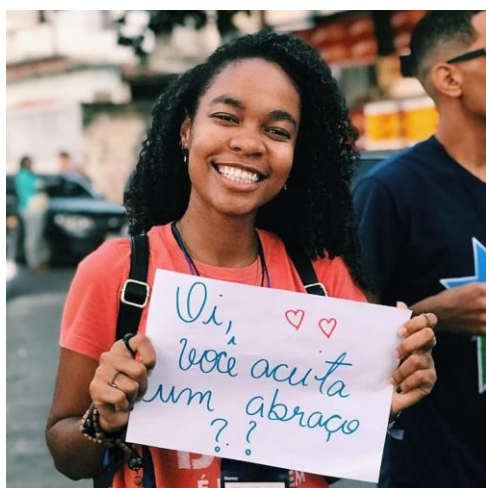 Oi,
você aceita
um abraço
? ?
É
EM